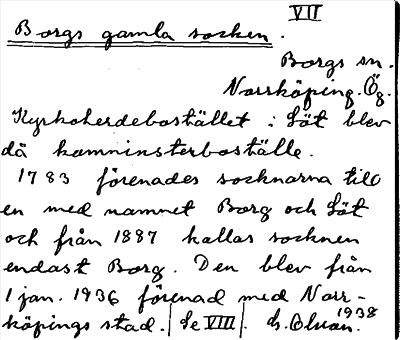 VII
Borgs gamla socken.
Borgs sn.
Norrköping. Ög.
Kyrkoherdebostället i Löt blev
då kamninsterboställe.
1783 förenades socknarna till
en med namnet Borg och Löt
och från 1887 kallas socknen
endast Borg. Den blev från
1 jan. 1936 förenad med Norr-
köpings stad. / Se VIII. / 1938